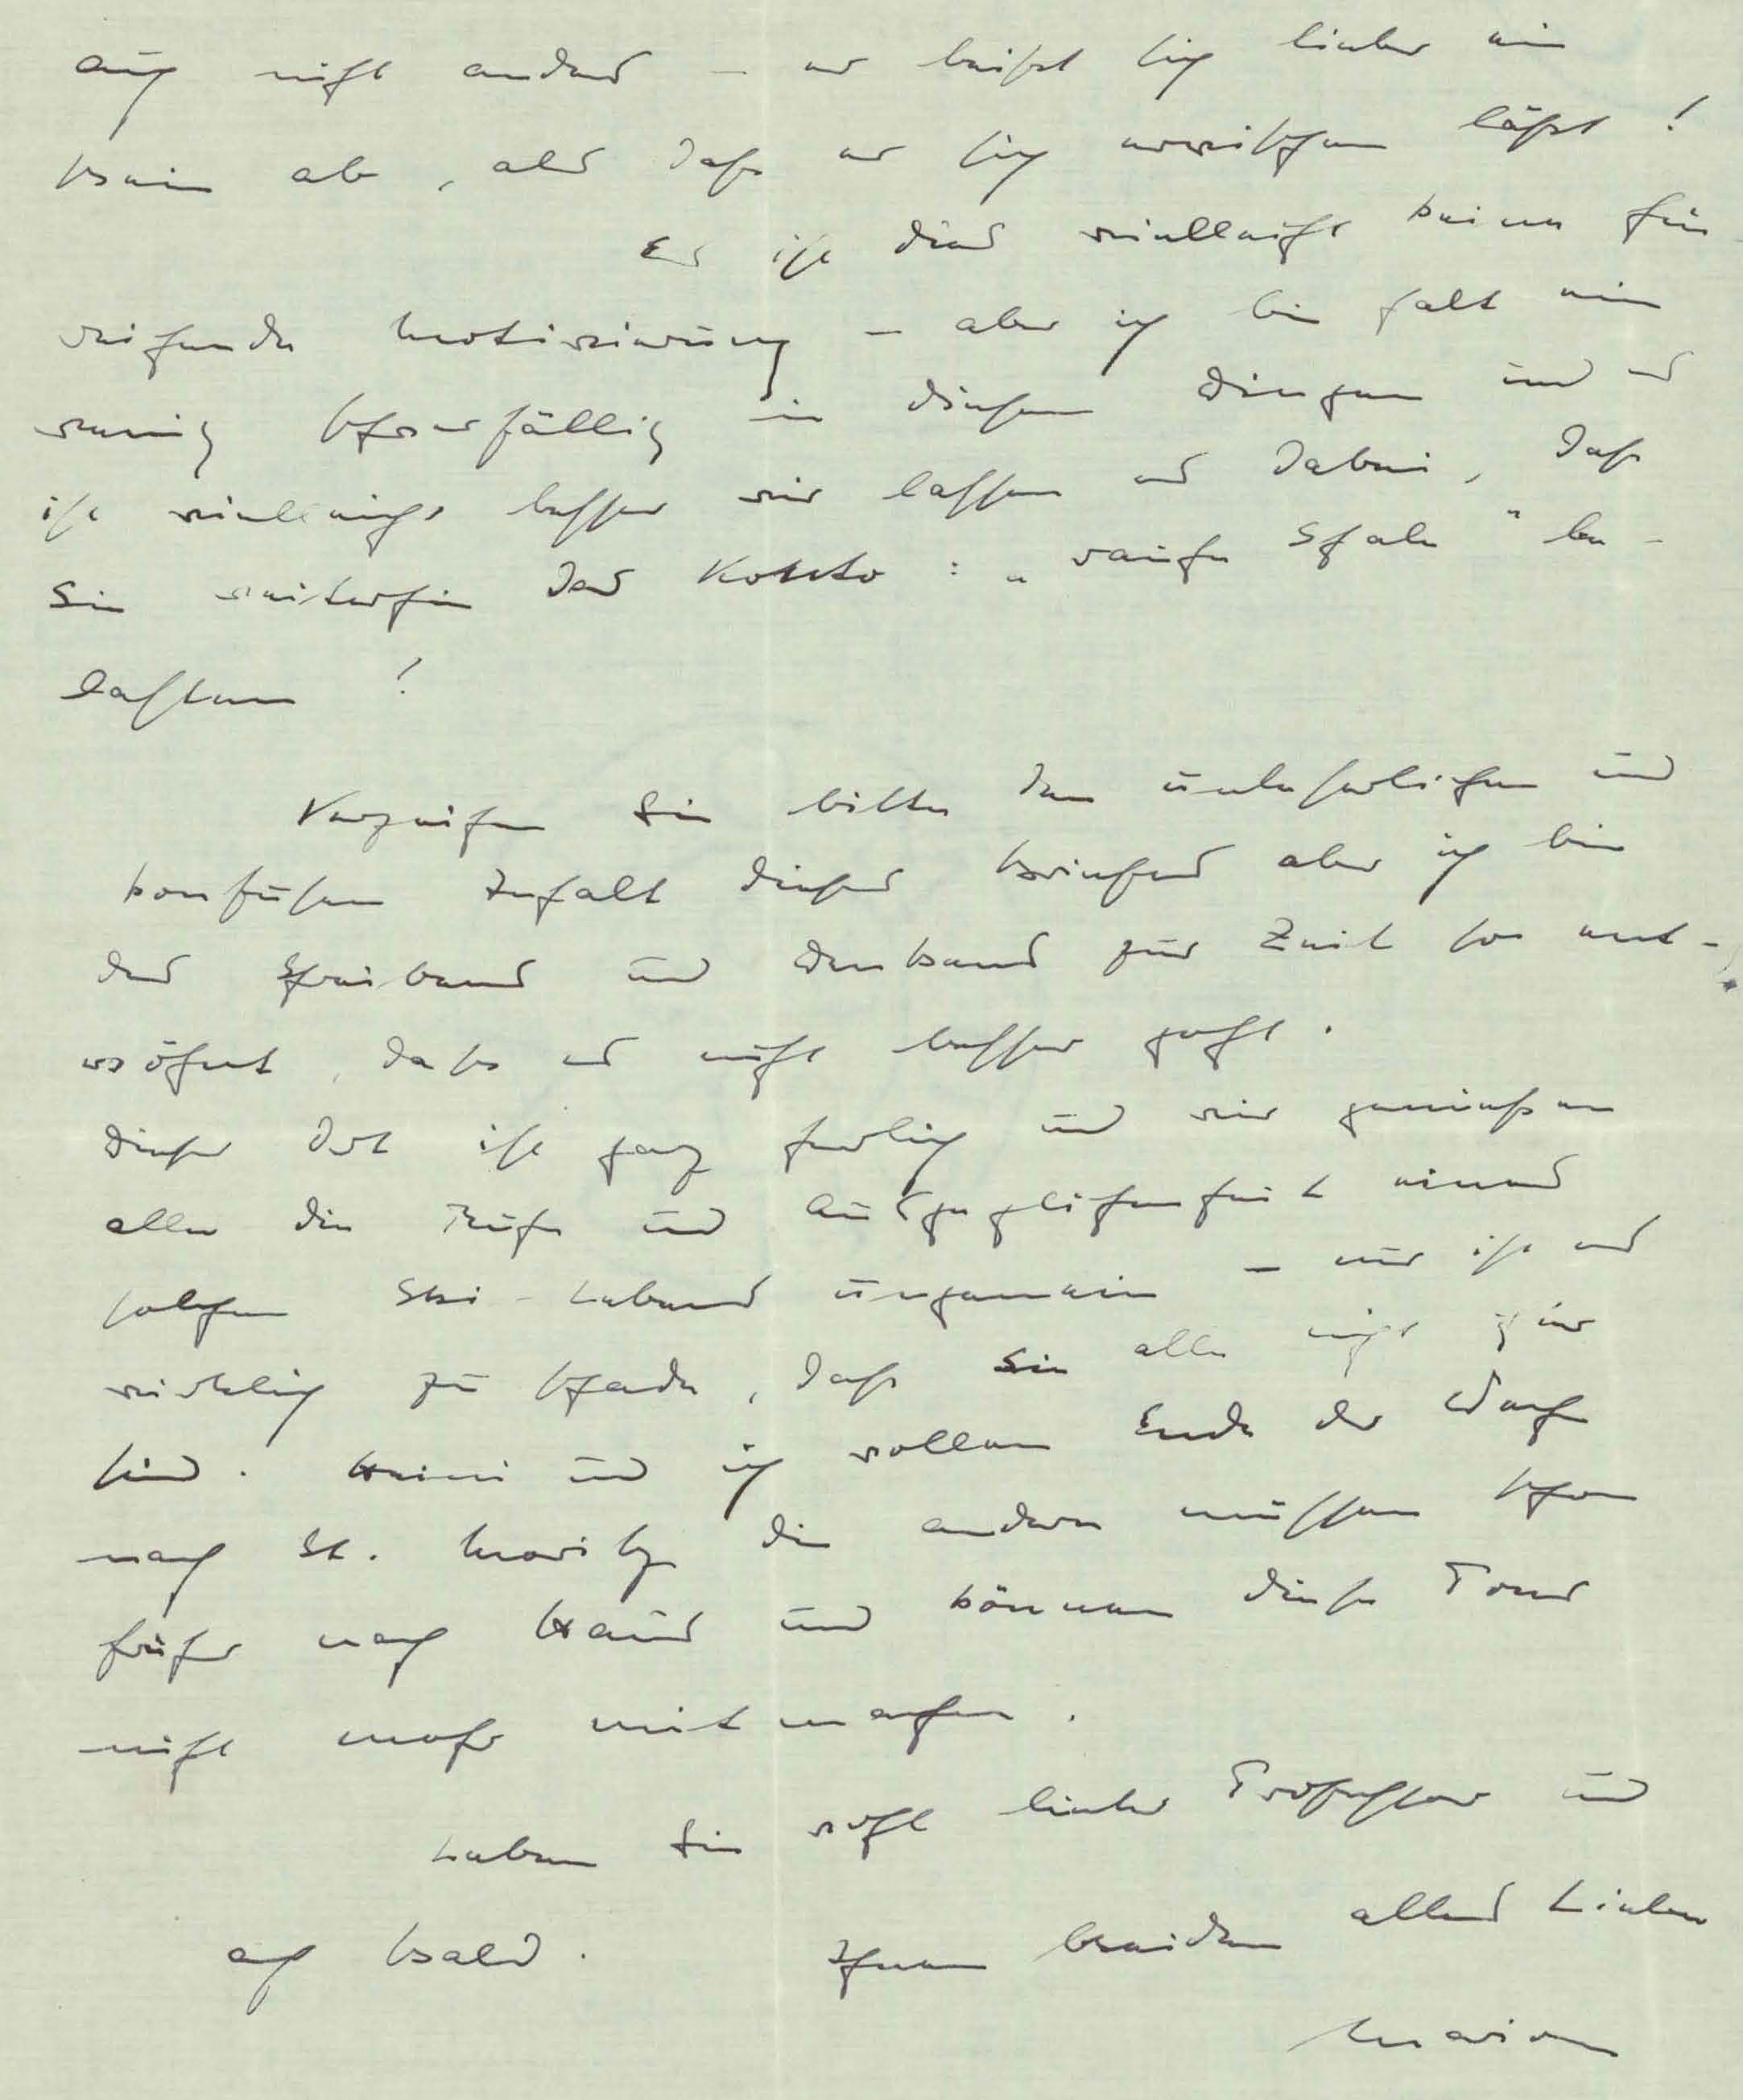 auch nicht anders – er beißt sich lieber ein
Bein ab, als daß er sich erwischen läßt!
Es ist dies vielleicht keine hin
reichende Motivierung – aber ich bin halt ein
wenig schwerfällig in diesen Dingen und es
ist vielleicht besser wir lassen es dabei, daß
Sie weiterhin das Konto: „rauhe Schale" be-
lasten!
Verzeihen Sie bitte den unleserlichen und
konfusen Inhalt dieses Briefes aber ich bin
des Schreibens und Denkens zur Zeit so ent-
wöhnt, daß es nicht besser geht.
Dieser Ort ist ganz herrlich und wir genießen
alle die Ruhe und Ausgeglichenheit eines
solchen Ski-Lebens ungemein – nur ist es
wirklich zu schade, daß Sie alle nicht hier
sind. Heini und ich wollen Ende der Woche
nach St. Moritz die andern müssen schon
früher nach Haus und können diese Tour
nicht mehr mitmachen.
Leben Sie wohl lieber Professor und
auf bald. Ihnen beiden alles Liebe
Marion